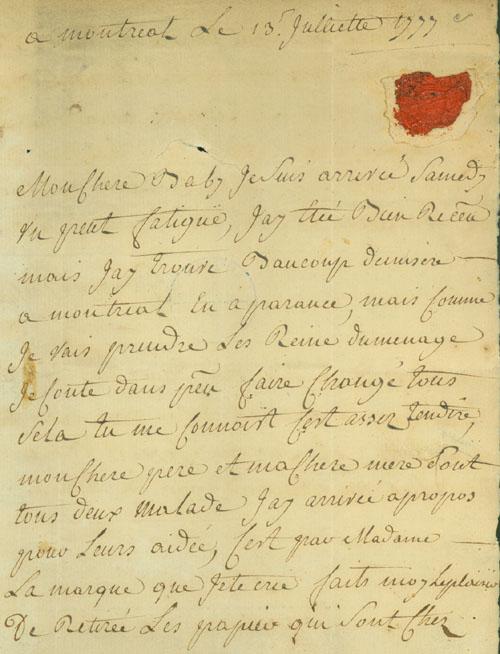 a montreal Le 13r Julliette 1777
Mon Chere Baby Je Suis arriveé Samedy
un peut fatiguë, Jay été Bien Recëu
mais Jay trouvé Baucoup demisere
a montreal En aparance, mais Comme
Je vais prendre Les Reine dumenage
Je Conte dans peu faire Changé tous
Sela tu me Connoist Cest assez Tendire,
mon Chere pere et ma Chere mere Sont
tous deux malade Jay arriveé apropos
pour Leurs aideé, Cest par Madame
La marque que Jetecrie faits moy Leplaisir
De Retireé Les papier qui Sont Chez